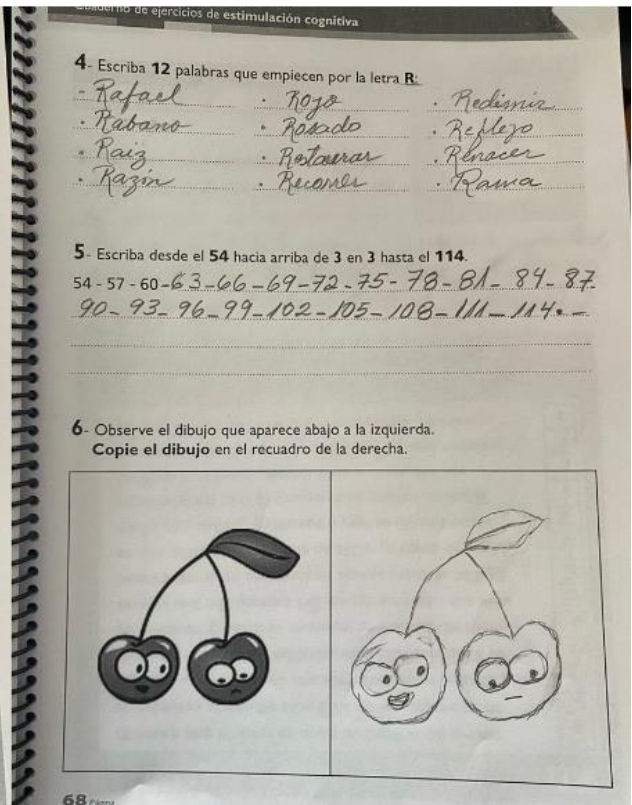 Cuaderno de ejercicios de estimulación cognitiva
4- Escriba 12 palabras que empiecen por la letra R:
- Rafael · Rojo · Redimir
· Rábano · Rosado · Reflejo
· Raiz · Restaurar · Renacer
· Razón · Recorrer · Rama
5- Escriba desde el 54 hacia arriba de 3 en 3 hasta el 114.
54 - 57 - 60 - 63 - 66 - 69 - 72 - 75 - 78 - 81 - 84 - 87 -
90 - 93 - 96 - 99 - 102 - 105 - 108 - 111 - 114 . -
6- Observe el dibujo que aparece abajo a la izquierda.
Copie el dibujo en el recuadro de la derecha.
68 Página